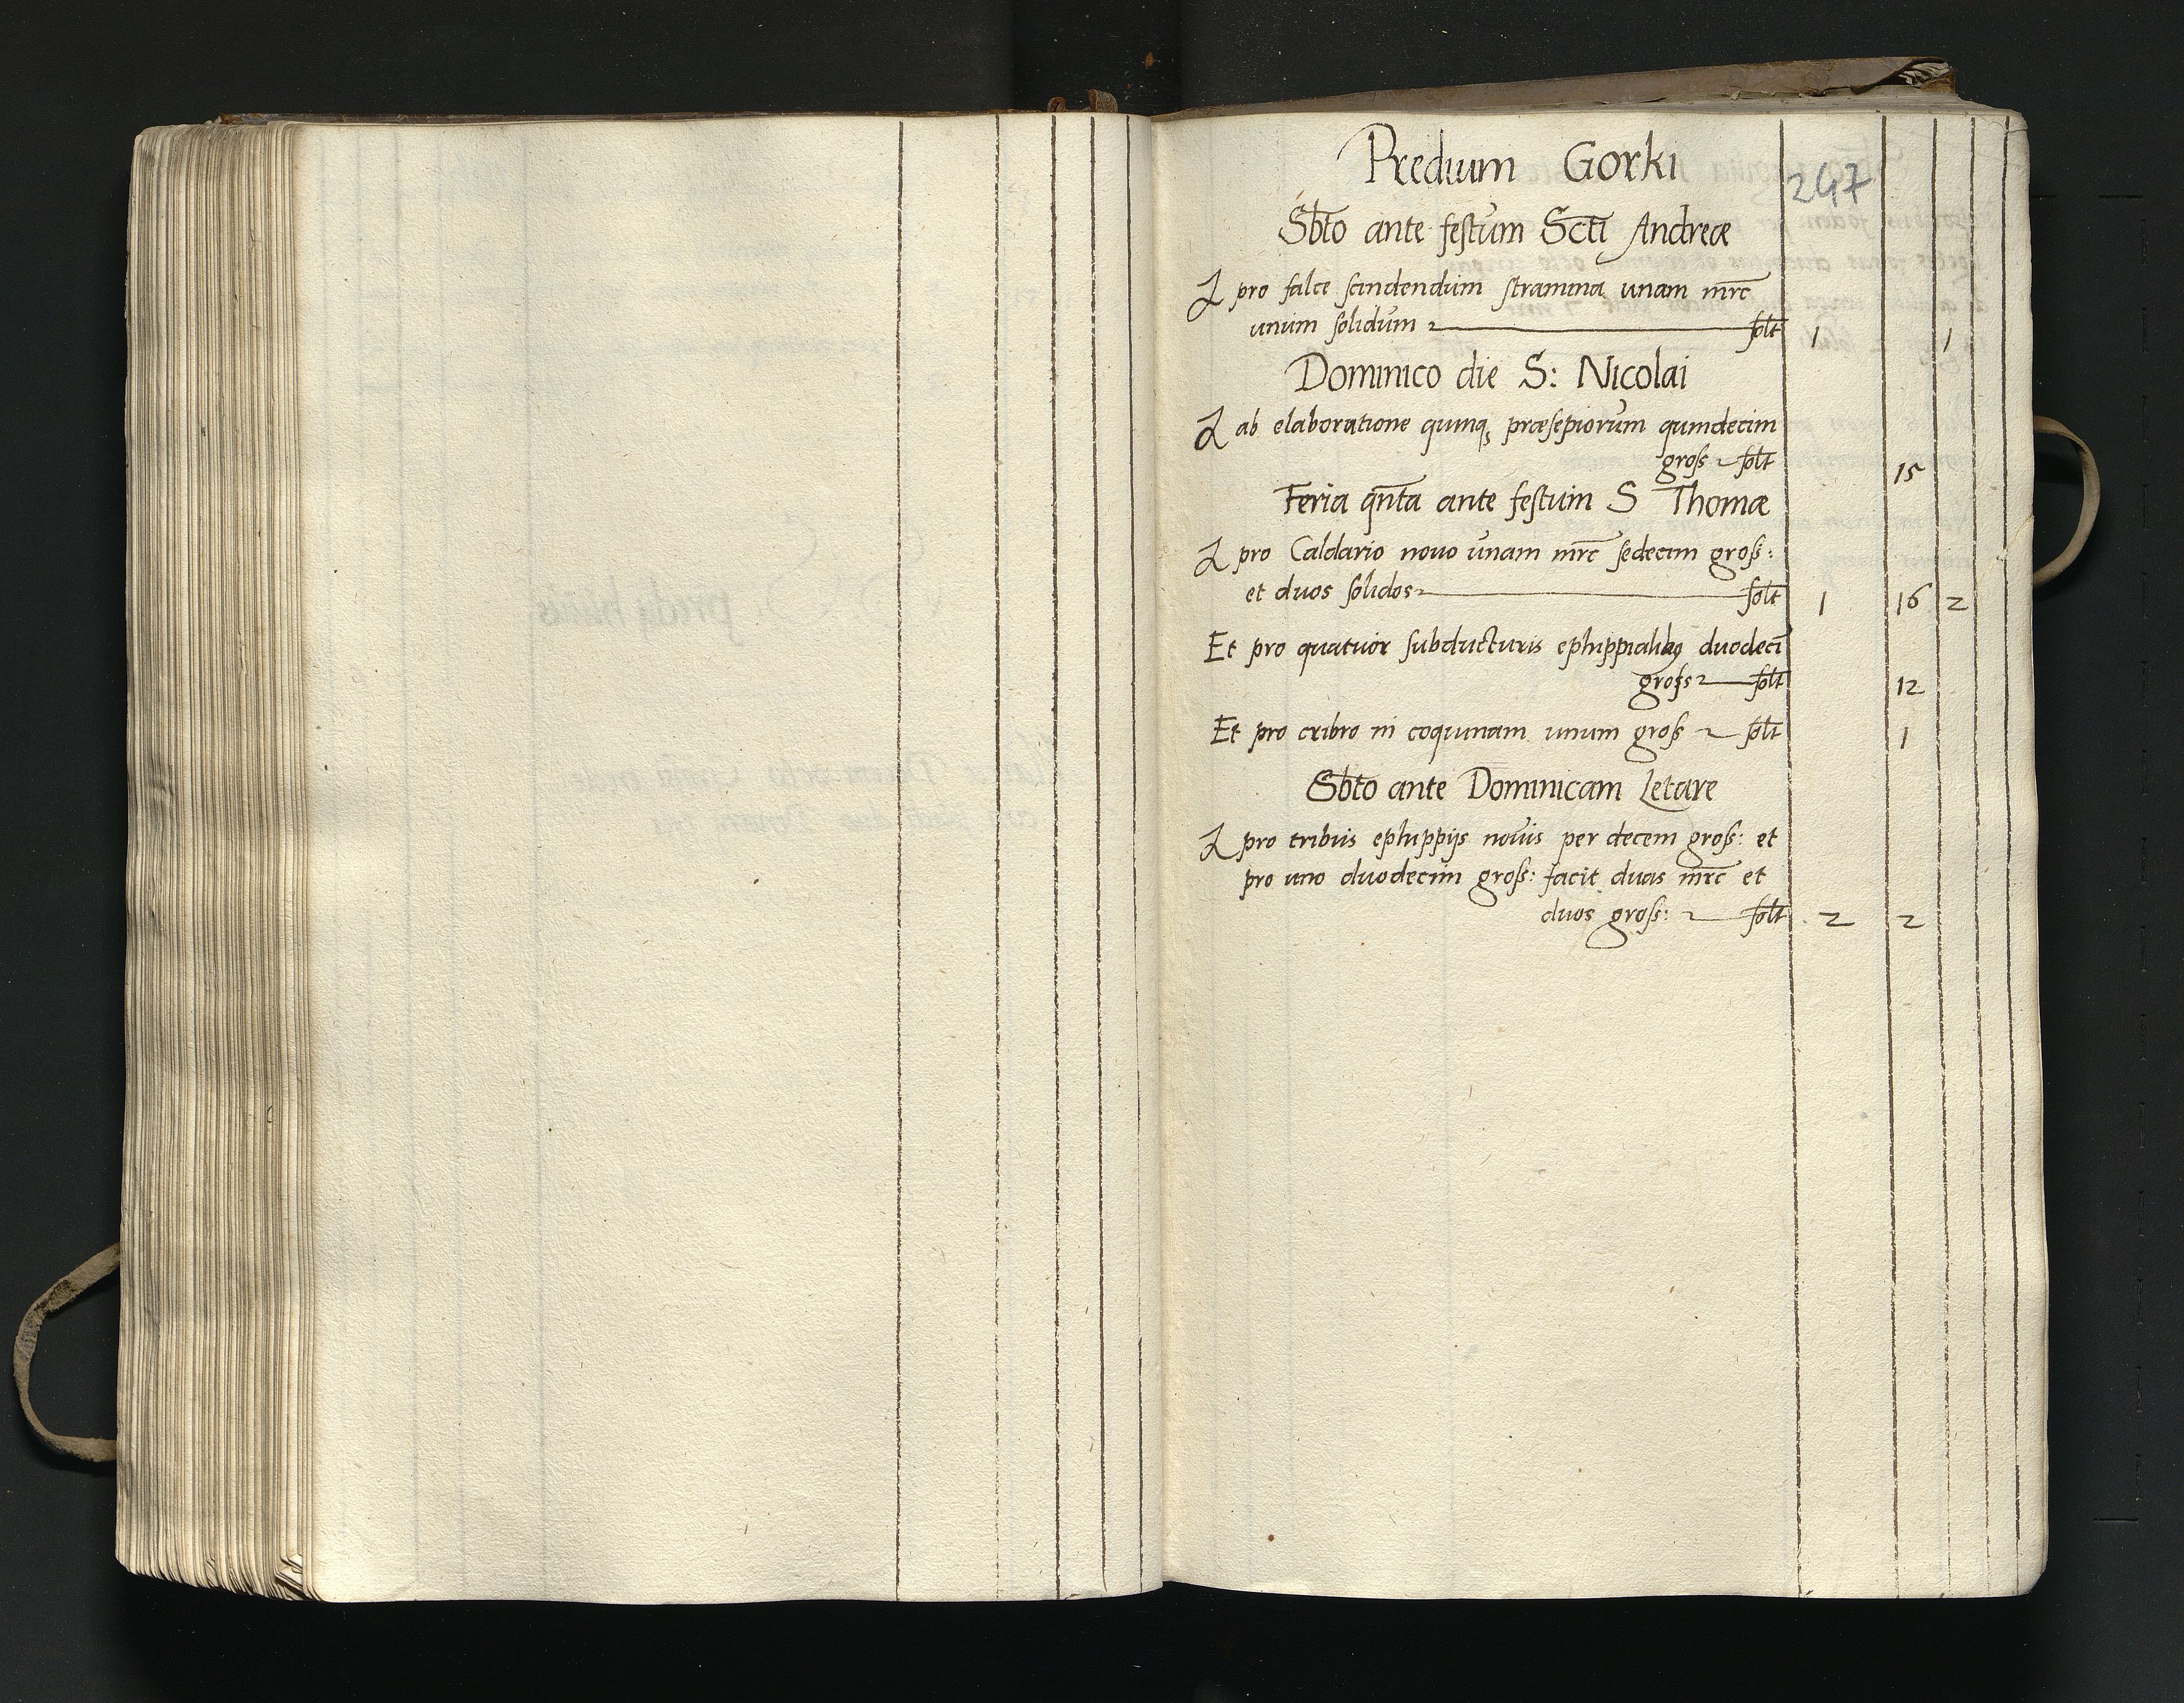 Predium Gorki
247
Sbto ante festum Scti Andreæ
pro falce scindendum stramina unam mrc
unum solidum solt 1 1
Dominico die S: Nicolai
ab elaboratione quinq præsepiorum quindecim
gross solt 15
Feria qnta ante festum S Thomæ
pro Caldario novo unam mrc sedecim gross:
et duos solidos solt 1 16 2
Et pro quatuor subducturis ephippialibq duodeci
gross solt 12
Et pro cribro in coquinam unum gross solt 1
Sbto ante Dominicam Letare
pro tribus ephippijs novis per decem gross: et
pro uno duodecim gross: facit duas mrc et
duos gross: solt 2 2